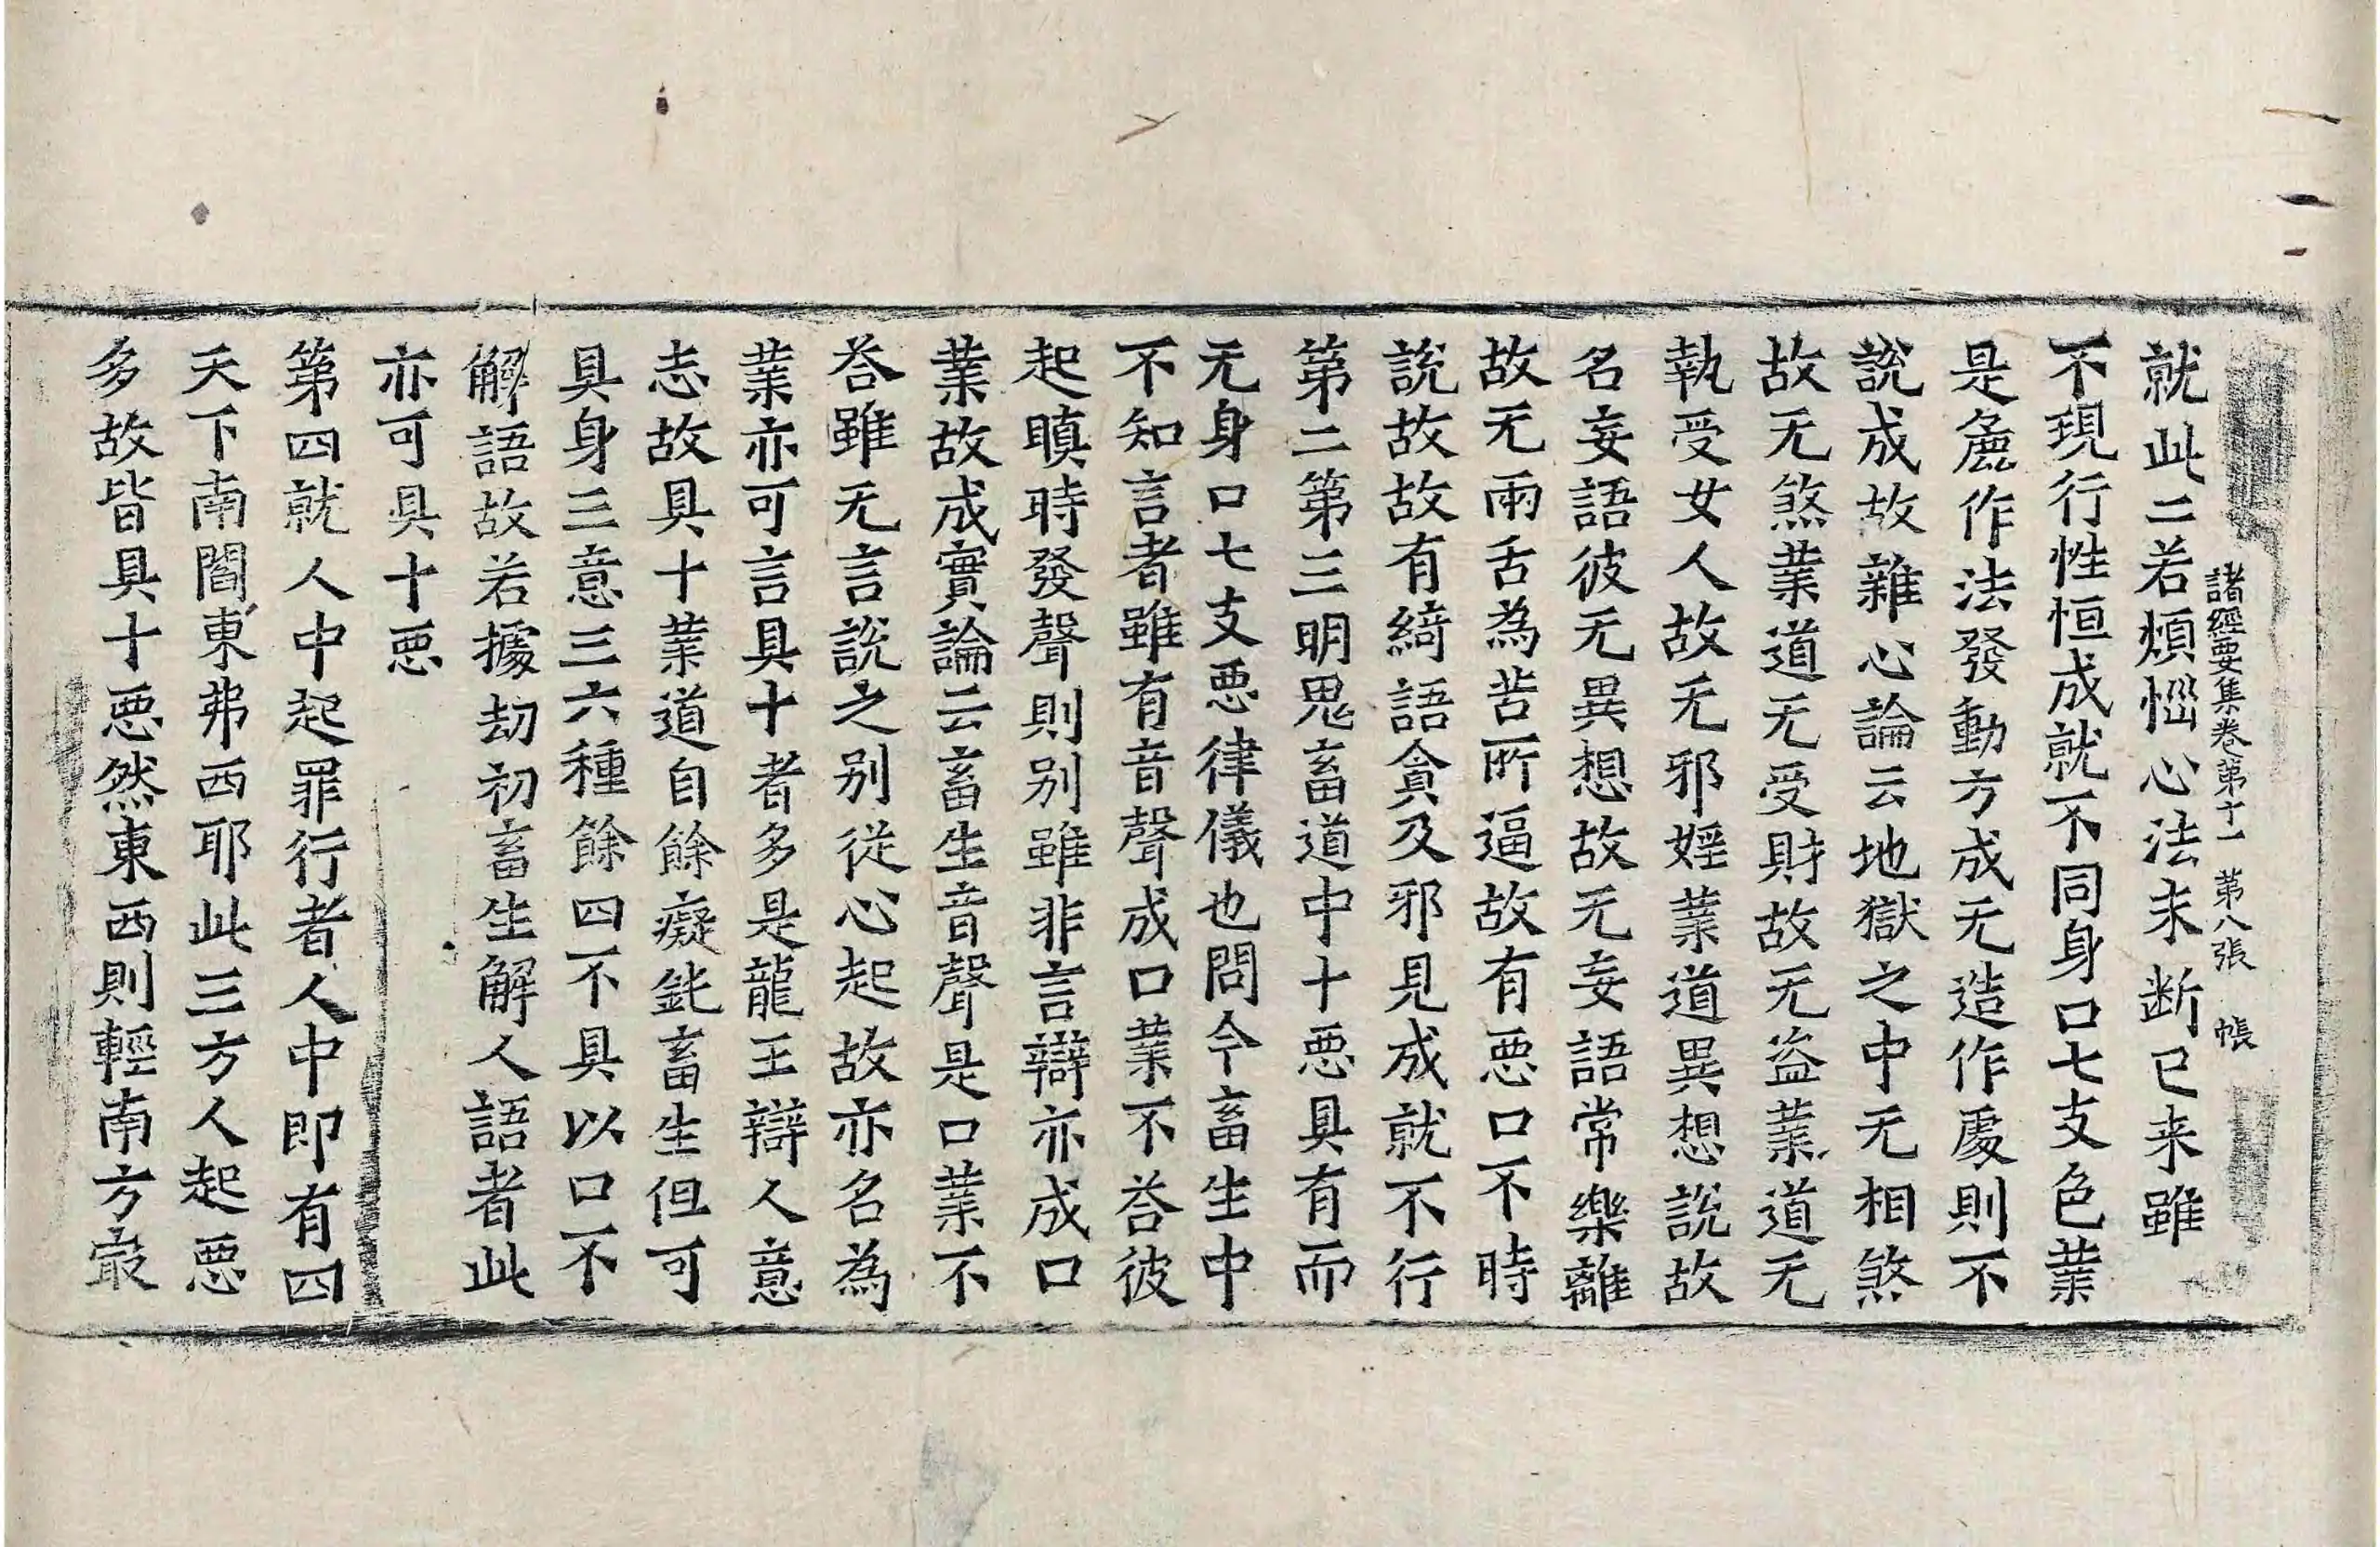 諸經要集卷第十一 第八張 帳
就此二若煩惱心法未断已来雖
不現行性恒成就不同身口七支色業
是麁作法發動方成无造作處則不
說成故雜心論云地獄之中无相煞
故无煞業道无受財故无盗業道无
執受女人故无邪婬業道異想說故
名妄語彼无異想故无妄語常樂離
故无兩舌為苦所逼故有惡口不時
說故故有綺語貪及邪見成就不行
第二第三明鬼畜道中十惡具有而
无身口七支惡律儀也問今畜生中
不知言者雖有音聲成口業不荅彼
起瞋時發聲則別雖非言辯亦成口
業故成實論云畜生音聲是口業不
荅雖无言說之別従心起故亦名為
業亦可言具十者多是龍王辯人意
志故具十業道自餘癡鈍畜生但可
具身三意三六種餘四不具以口不
解語故若據劫初畜生解人語者此
亦可具十惡
第四就人中起罪行者人中即有四
天下南閻東弗西耶此三方人起惡
多故皆具十惡然東西則輕南方㝡